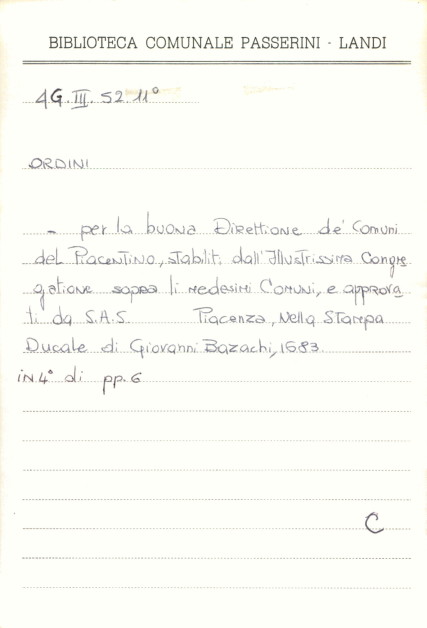 BIBLIOTECA COMUNALE PASSERINI - LANDI
4G. III. 52. 11°
ORDINI
- per la buona Direttione de' Comuni
del Piacentino, stabiliti dall'Illustrissima Congre
gatione sopra li medesimi Comuni, e approva
ti da S.A.S. Piacenza, Nella Stampa
Ducale di Giovanni Bazachi, 1683.
in 4° di pp. 6
C